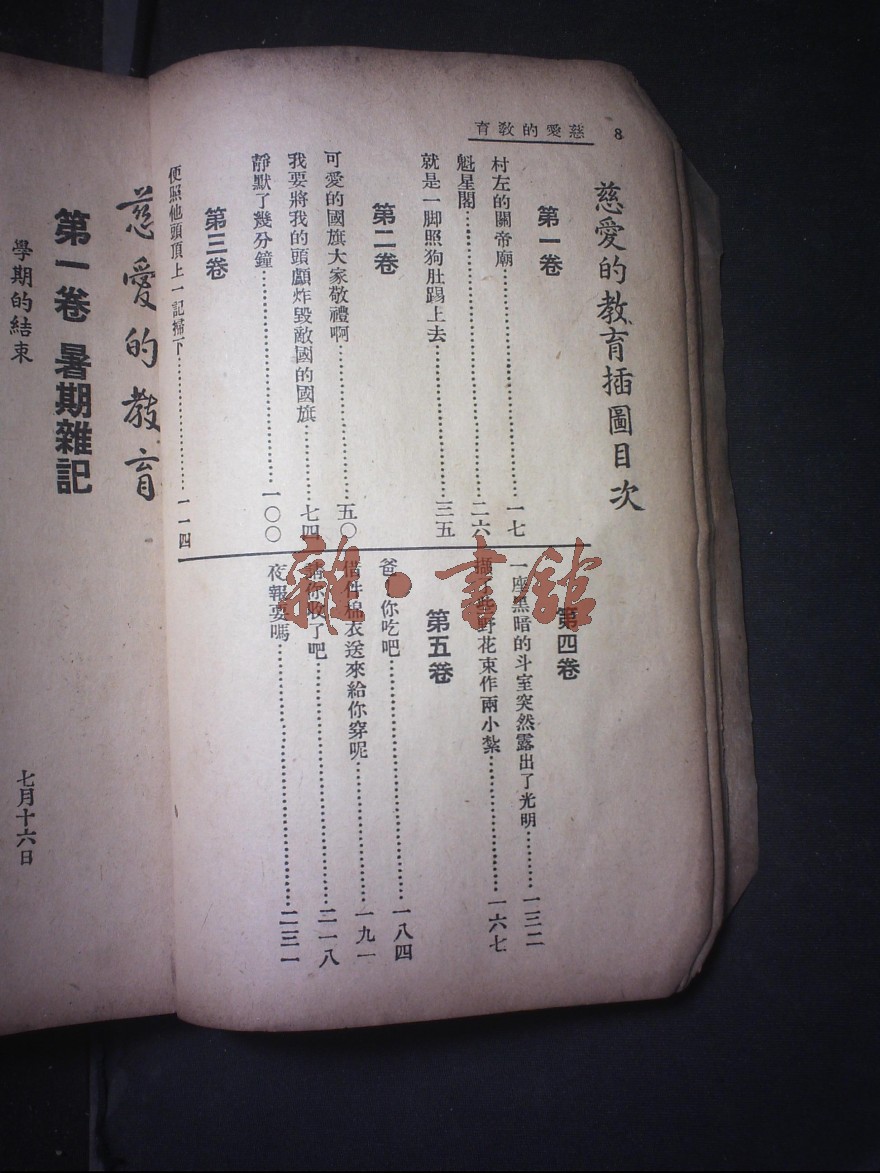 8
慈愛的教育
慈愛的教育插圖目次
第一卷
村左的關帝廟……一七
魁星閣……二六
就是一脚照狗肚踢上去……三五
第二卷
可愛的國旗大家敬禮啊……五〇
我要將我的頭顱炸毀敵國的國旗……七四
靜默了幾分鐘……一〇〇
第三卷
便照他頭頂上一記掃下……一一四
第四卷
一座黑暗的斗室突然露出了光明……一三二
些野花束作兩小紮……一六七
第五卷
爸！你吃吧……一八四
借件棉衣送來給你穿呢……一九一
請你收了吧……二一八
夜報要嗎……二三一
慈愛的教育
第一卷 暑期雜記
學期的結束
七月十六日
雜·書館